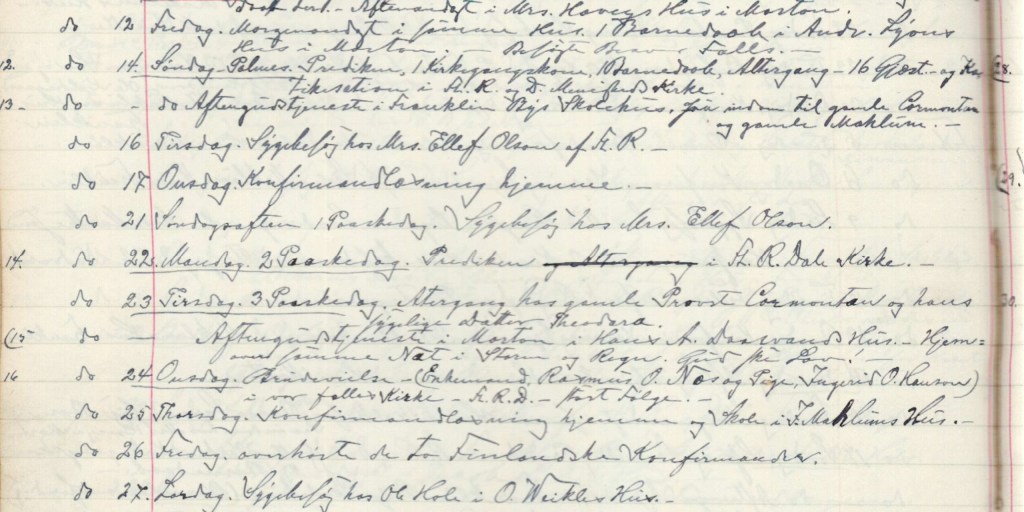 Aftenandagt i Mrs. Hovers Hus i Morton.
do 12 Fredag. Morgenandagt i samme Hus. 1 Barnedaab i Andr. Lyons
Hus i Morton. - Falls. -
12. do 14. Søndag Palmes. Prediken, 1 Kirkegangskone, 1 Barnedaab, Altergang - 16 Gæst. - og
i St. R. og D. Menigheds Kirke.
13 - do - do Aftengudstjeneste i Franklin Bys Skolehus, før indom til gamle Cormontan
og gamle Maklum. -
do 16 Tirsdag. Sygebesøg hos Mrs. Ellef Olson af S. R. -
do 17 Onsdag. Konfirmandlæsning hjemme. -
do 21 Søndagaften 1 Paaskedag. Sygebesøg hos Mrs. Ellef Olson.
14. do 22. Mandag. 2 Paaskedag. Prediken og Altergang i St. R. Dale Kirke. -
do 23 Tirsdag. 3 Paaskedag. Altergang hos gamle Provst Cormontan og hans
sygelige Datter Theodora.
(15 do - Aftengudstjeneste i Morton i Hans A. Hus. - Hjem=
over samme Nat i Storm og Regn. Gud ske Lov! -
16 do 24 Onsdag. Brudevielse - (Enkemand, Rasmus O. Næs og Pige, Ingerid O. Hanson)
i vor fælles Kirke - S. R. D. - stort Følge. -
do 25 Thorsdag. Konfirmandlæsning hjemme og Skole i J. Maklums Hus. -
do 26 Fredag. overhørte de to Finlandske Konfirmander.
do 27. Lørdag. Sygebesøg hos Ole Hole i O. Weikles Hus. -